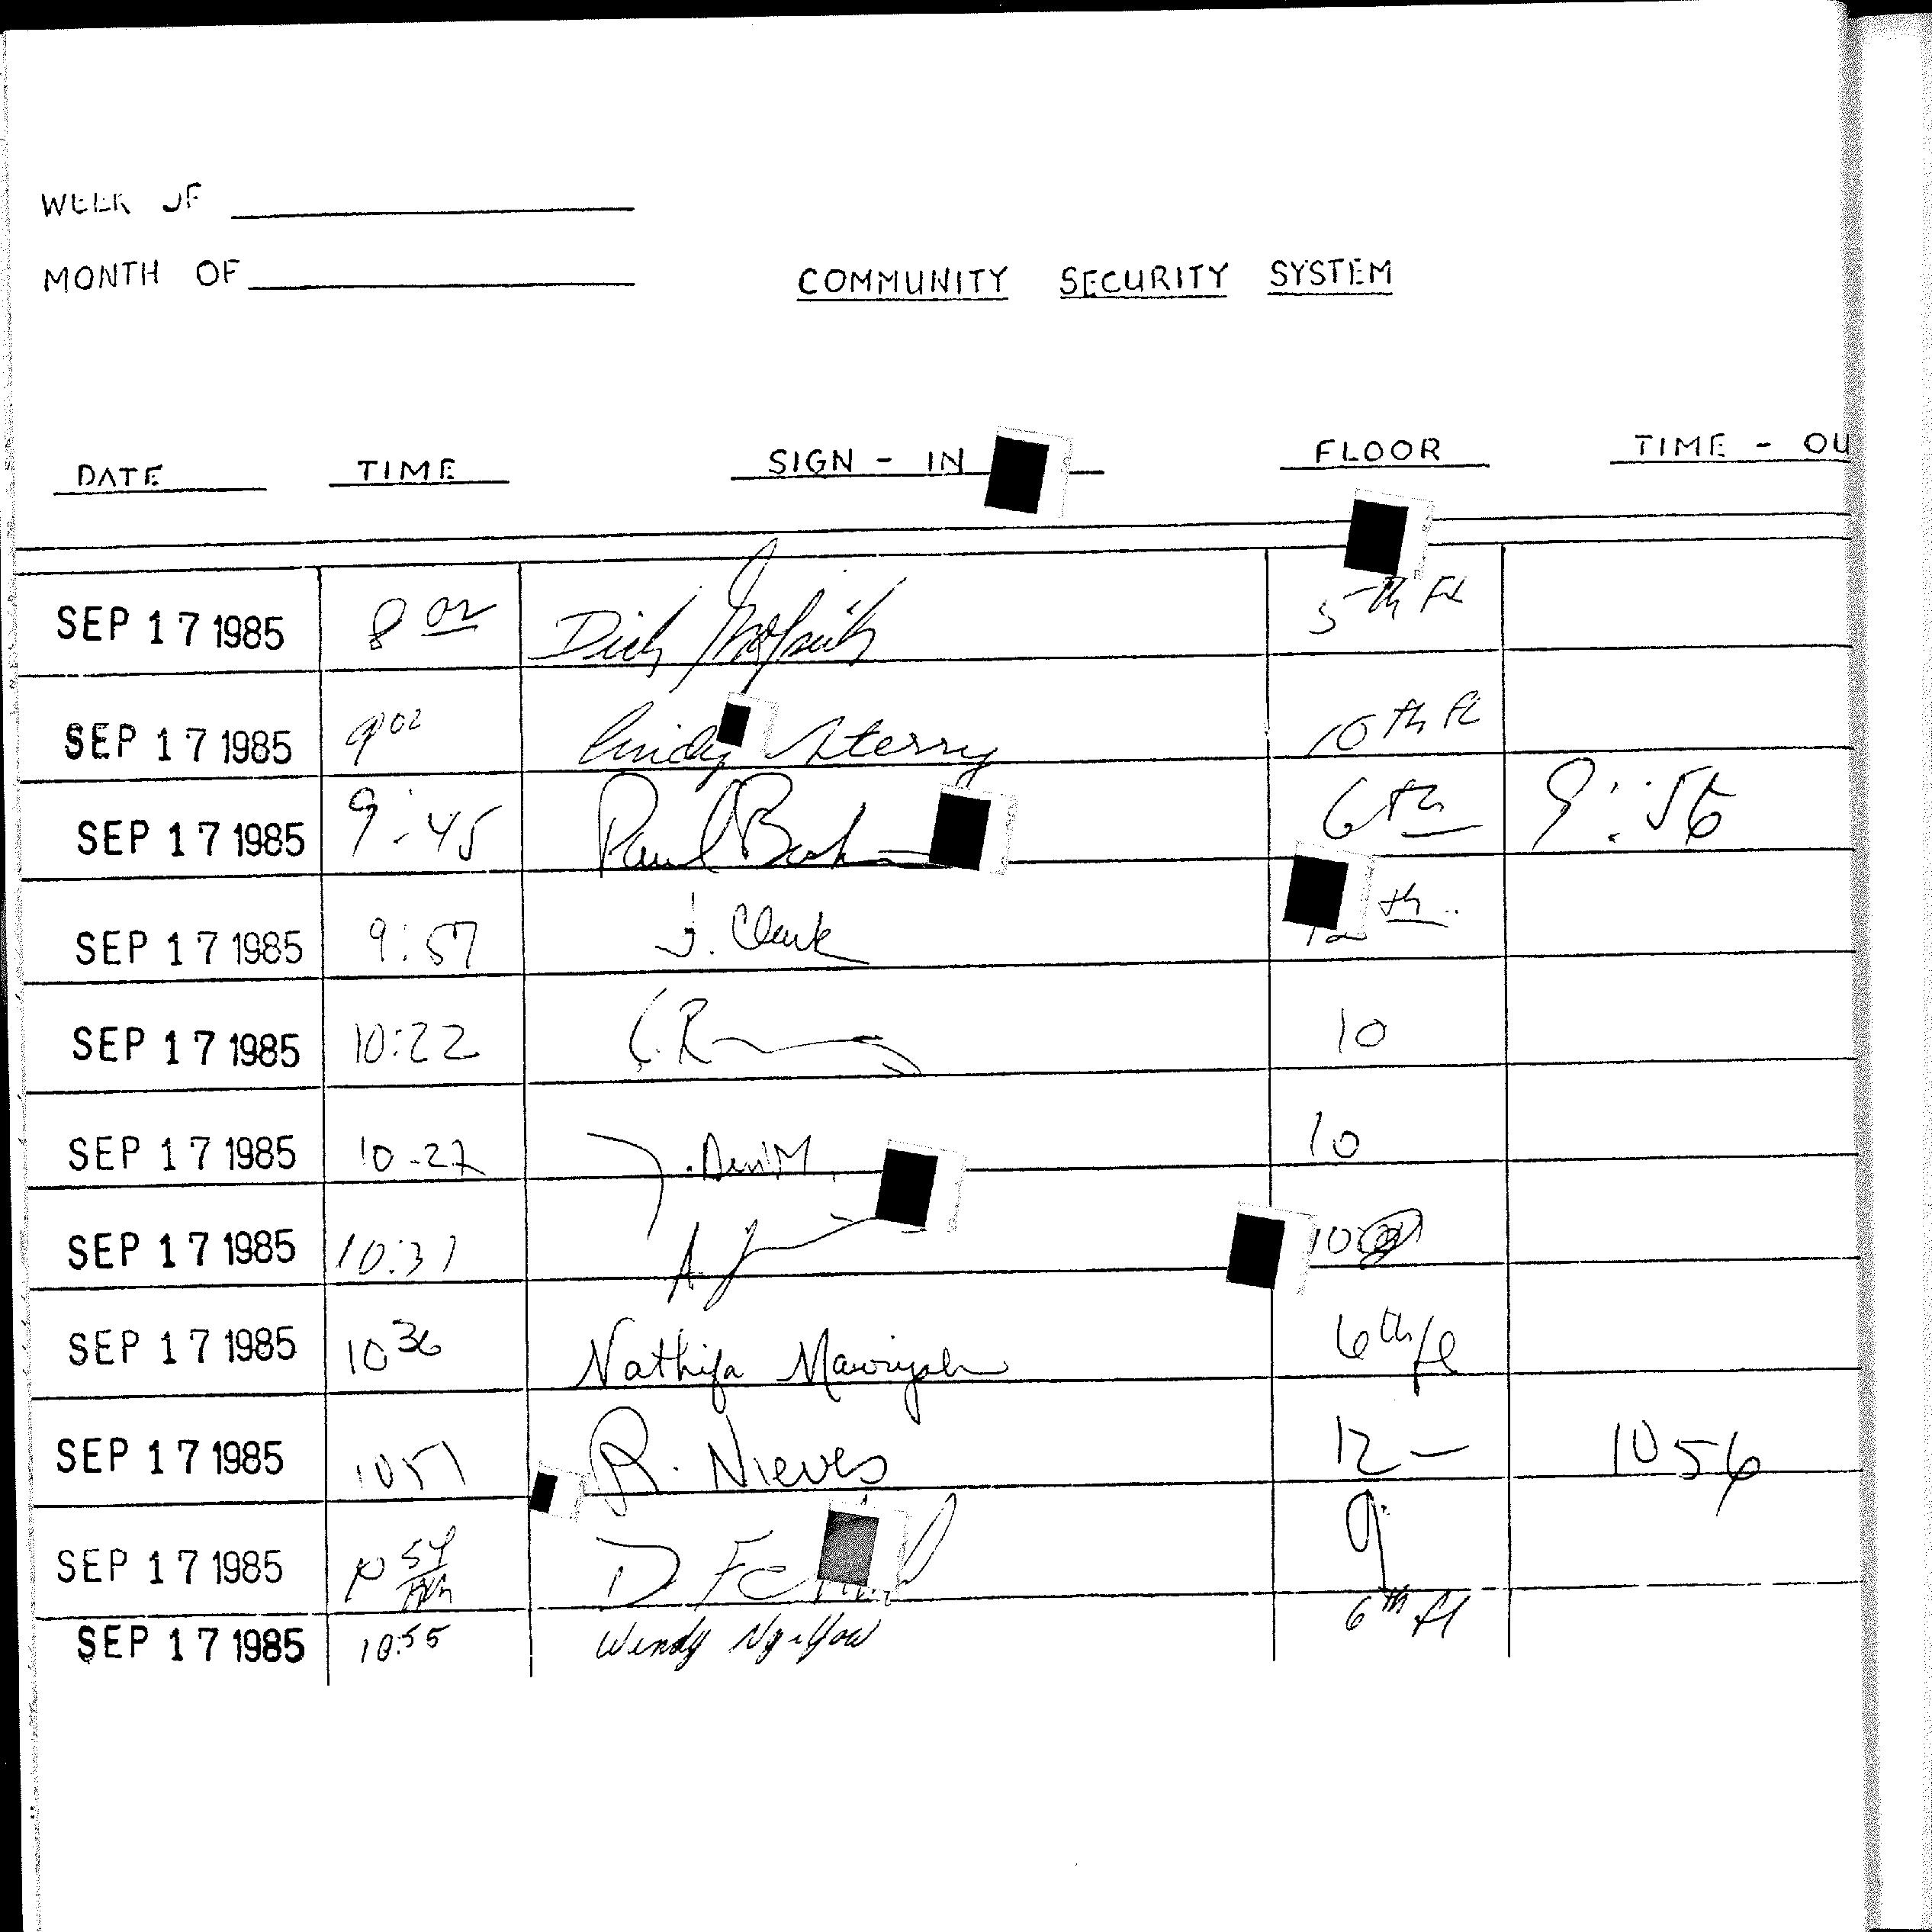 WEEK OF
MONTH OF
COMMUNITY SECURITY SYSTEM
DATE TIME SIGN - IN FLOOR TIME - OU
SEP 17 1985 8 00 Dick 5th FL
SEP 17 1985 9 02 Cindy Sterry 10th fl
SEP 17 1985 9:45 Paul 6th 9:56
SEP 17 1985 9:57 J. Clark 12th
SEP 17 1985 10:22 10
SEP 17 1985 10-27 10
SEP 17 1985 10:31 10
SEP 17 1985 10 36 Nathifa 6th fl
SEP 17 1985 10 51 R. Nieves 12 - 10 56
SEP 17 1985 10 54 D 9
SEP 17 1985 10:55 Wendy 6th fl